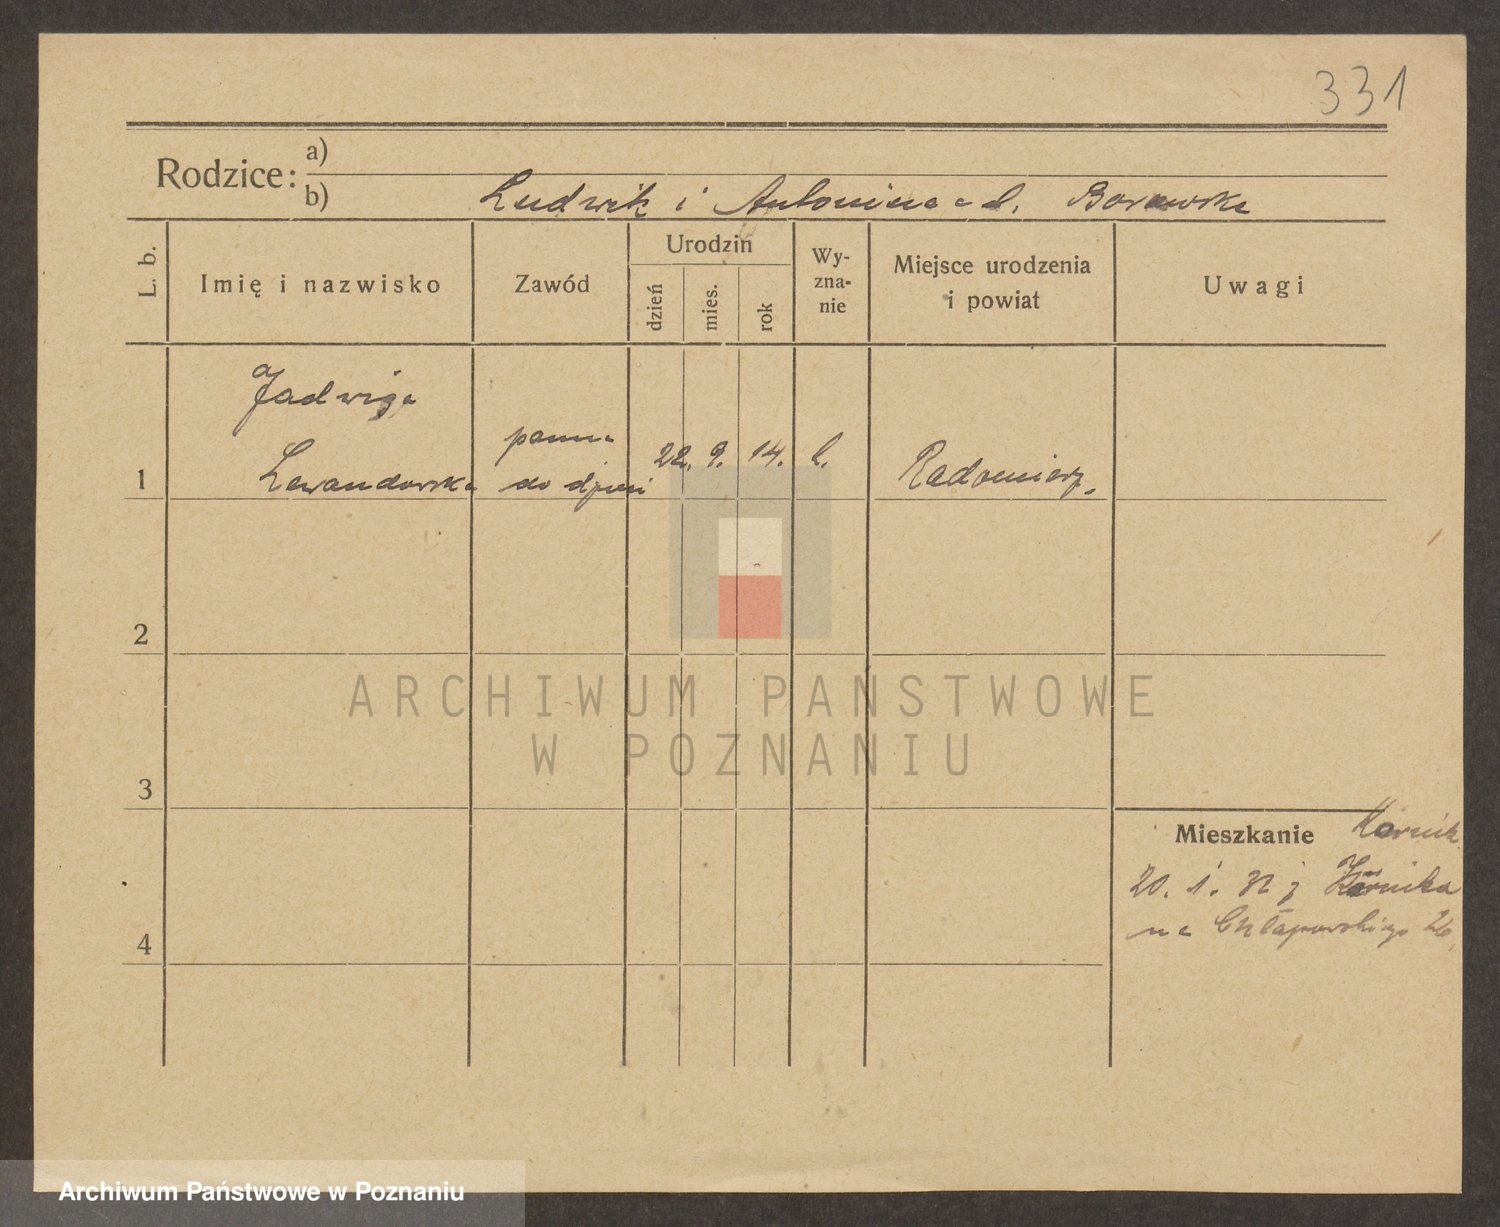 331
Rodzice: a)
b) Ludwik i Antonina Borowska
L. b.
Imię i nazwisko
Zawód
Urodzin
dzień
mies.
rok
Wy-
zna-
nie
Miejsce urodzenia
i powiat
Uwagi
Jadwiga
panna
1 Lewandowska do dzieci 22. 9. 14. k. Radomierz.
2
ARCHIWUM PAŃSTWOWE
W POZNANIU
3
Mieszkanie Kórnik
20. 1. 32 z Kórnika
na Chłapowskiego 26
4
Archiwum Państwowe w Poznaniu